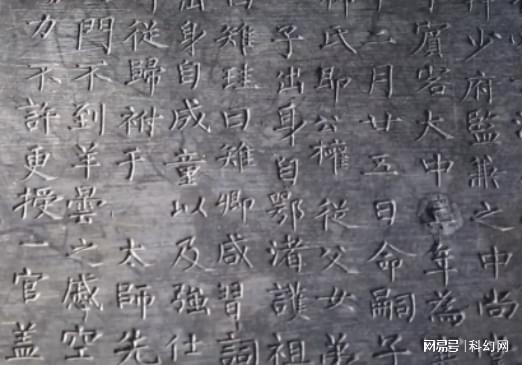 少府監兼之中尚
賓客大中年為
二月廿五日命嗣子
氏即公權從父女弟
子出身自鄂渚護祖
曰雉珪曰雉卿咸習詞
出身自成童以及強仕
從歸祔于太師先
門不到羊曇之感空
力不許更授一官蓋
网易号|科幻网